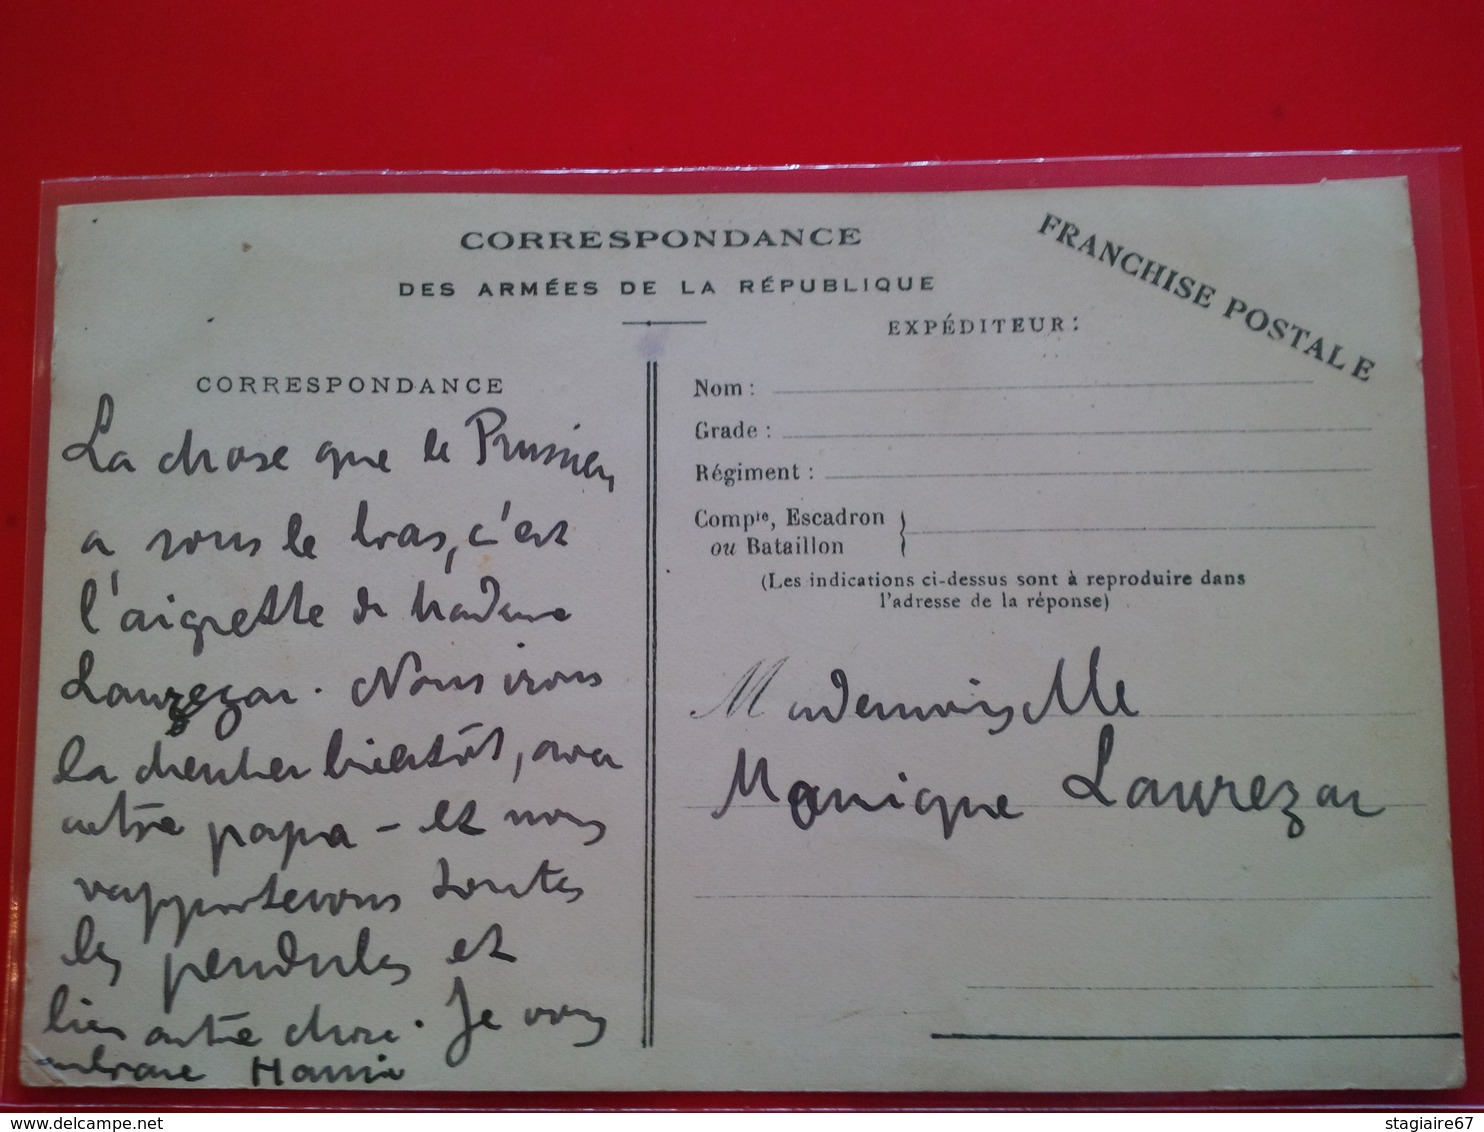 CORRESPONDANCE
DES ARMÉES DE LA RÉPUBLIQUE
FRANCHISE POSTALE
CORRESPONDANCE
La chose que le Prussien
a sous le bras, c'est
l'aigrette de Madame
Laurezar. Nous irons
la chercher bientôt, avec
votre papa - et nous
rapporterons toutes
les pendules et
bien autre chose. Je vous
embrasse
EXPÉDITEUR :
Nom :
Grade :
Régiment :
Compie, Escadron
ou Bataillon
(Les indications ci-dessus sont à reproduire dans
l'adresse de la réponse)
Mademoiselle
Monique Laurezar
www.delcampe.net
stagiaire67